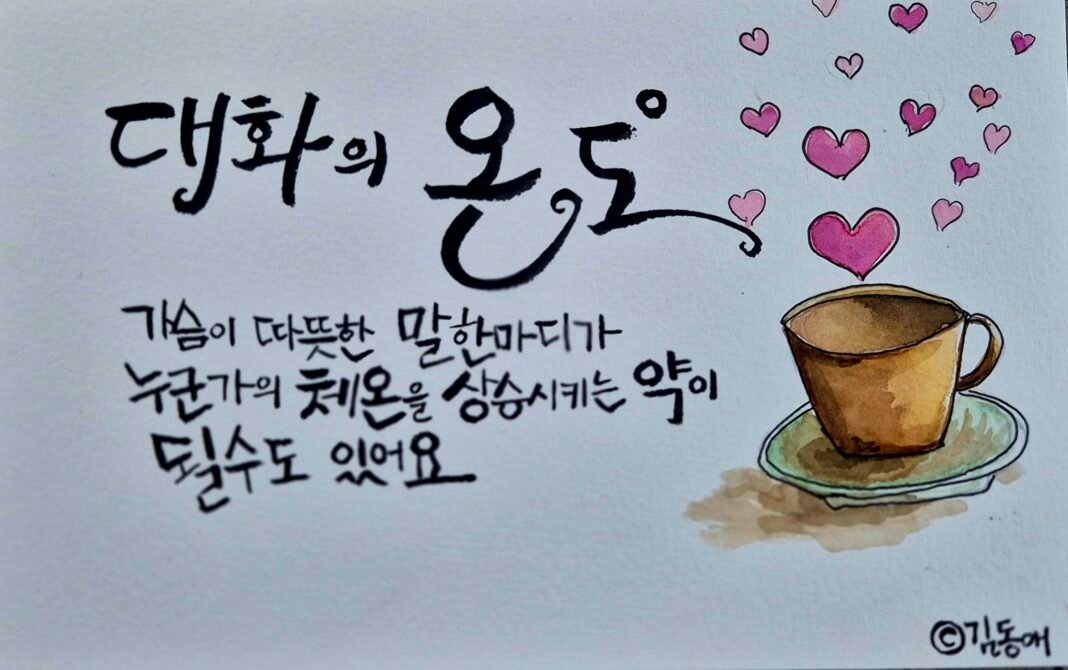 대화의 온도
가슴이 따뜻한 말한마디가
누군가의 체온을 상승시키는 약이
될수도 있어요
©김동애